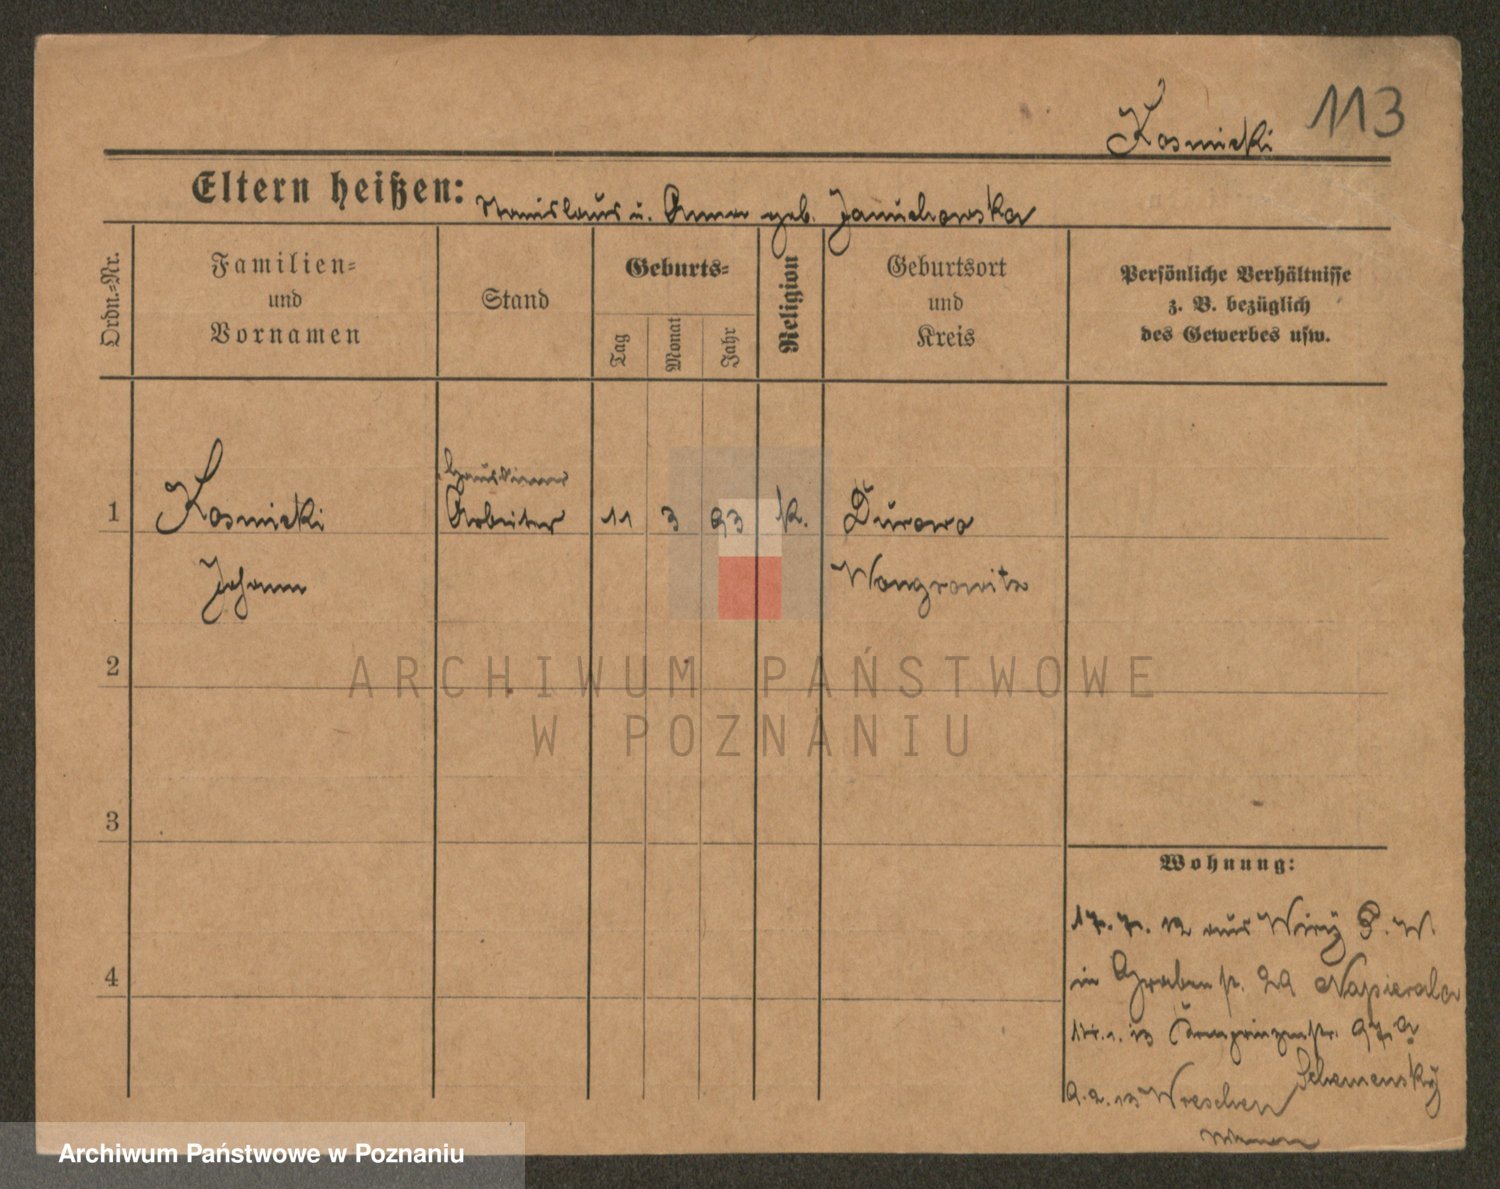 113
Kosmicki
Eltern heißen: Stanislaus u. Anna geb. Januchowska
Ordn.-Nr.
Familien-
und
Vornamen
Stand
Geburts-
Tag
Monat
Jahr
Religion
Geburtsort
und
Kreis
Persönliche Verhältnisse
z. B. bezüglich
des Gewerbes usw.
1
Kosmicki
Johann
Hausdiener
Arbeiter
11
3
93
k.
Durowo
Wongrowitz
2
3
4
ARCHIWUM PAŃSTWOWE
W POZNANIU
Wohnung:
17. 7. 12 aus Wiry P. W.
in Grabenstr. 29 Napierala
1. 13 Kronprinzenstr. 97a
Schemensky
9. 2. 13 Wreschen
Archiwum Państwowe w Poznaniu